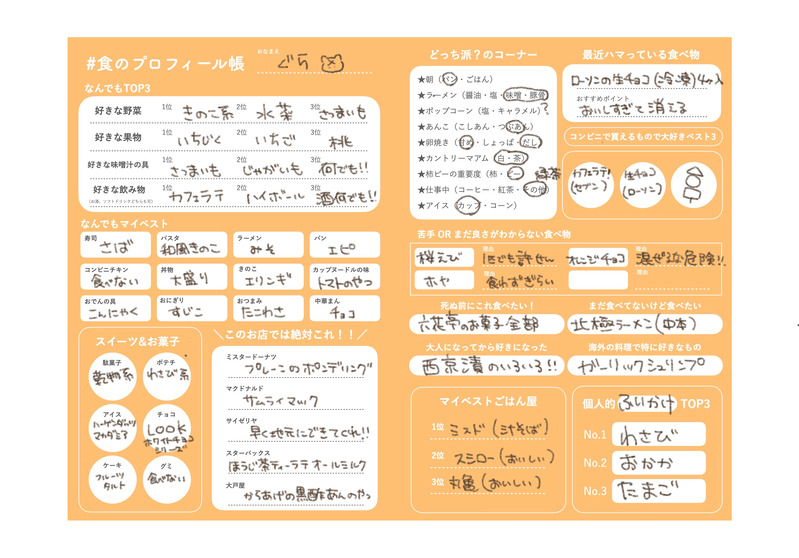 #食のプロフィール帳
おなまえ
ぐら
なんでもTOP3
好きな野菜 1位 きのこ系 2位 水菜 3位 さつまいも
好きな果物 1位 いちじく 2位 いちご 3位 桃
好きな味噌汁の具 1位 さつまいも 2位 じゃがいも 3位 何でも!!
好きな飲み物 1位 カフェラテ 2位 ハイボール 3位 酒何でも!!
(お酒、ソフトドリンクどちらも可)
なんでもマイベスト
寿司 さば
パスタ 和風きのこ
ラーメン みそ
パン エピ
コンビニチキン 食べない
丼物 大盛り
きのこ エリンギ
カップヌードルの味 トマトのやつ
おでんの具 こんにゃく
おにぎり すじこ
おつまみ たこわさ
中華まん チョコ
スイーツ&お菓子
駄菓子 乾物系
ポテチ わさび系
アイス ハーゲンダッツ マカダミア
チョコ LOOK ホワイトチョコ シリーズ
ケーキ フルーツ タルト
グミ 食べない
＼このお店では絶対これ！！／
ミスタードーナツ
プレーンのポンデリング
マクドナルド
サムライマック
サイゼリヤ
早く地元にできてくれ!!
スターバックス
ほうじ茶ティーラテオールミルク
大戸屋
からあげの黒酢あんのやつ
どっち派？のコーナー
★朝（パン・ごはん）
★ラーメン（醤油・塩・味噌・豚骨）
★ポップコーン（塩・キャラメル）?
★あんこ（こしあん・つぶあん）
★卵焼き（甘め・しょっぱ・だし）
★カントリーマアム（白・茶）
★柿ピーの重要度（柿・ピー）
★仕事中（コーヒー・紅茶・その他）緑茶
★アイス（カップ・コーン）
最近ハマっている食べ物
ローソンの生チョコ(冷凍)4ヶ入
おすすめポイント
おいしすぎて消える
コンビニで買えるもので大好きベスト3
カフェラテ! (セブン)
生チョコ (ローソン)
苦手 OR まだ良さがわからない食べ物
桜えび 理由 1匹でも許せん
オレンジチョコ 理由 混ぜるな危険!!
ホヤ 理由 食わずぎらい
理由
死ぬ前にこれ食べたい！
六花亭のお菓子全部
まだ食べてないけど食べたい
北極ラーメン(中本)
大人になってから好きになった
西京漬のいろいろ!!
海外の料理で特に好きなもの
ガーリックシュリンプ
マイベストごはん屋
1位 ミスド(汁そば)
2位 スシロー(おいしい)
3位 丸亀(おいしい)
個人的 ふりかけ TOP3
No.1 わさび
No.2 おかか
No.3 たまご